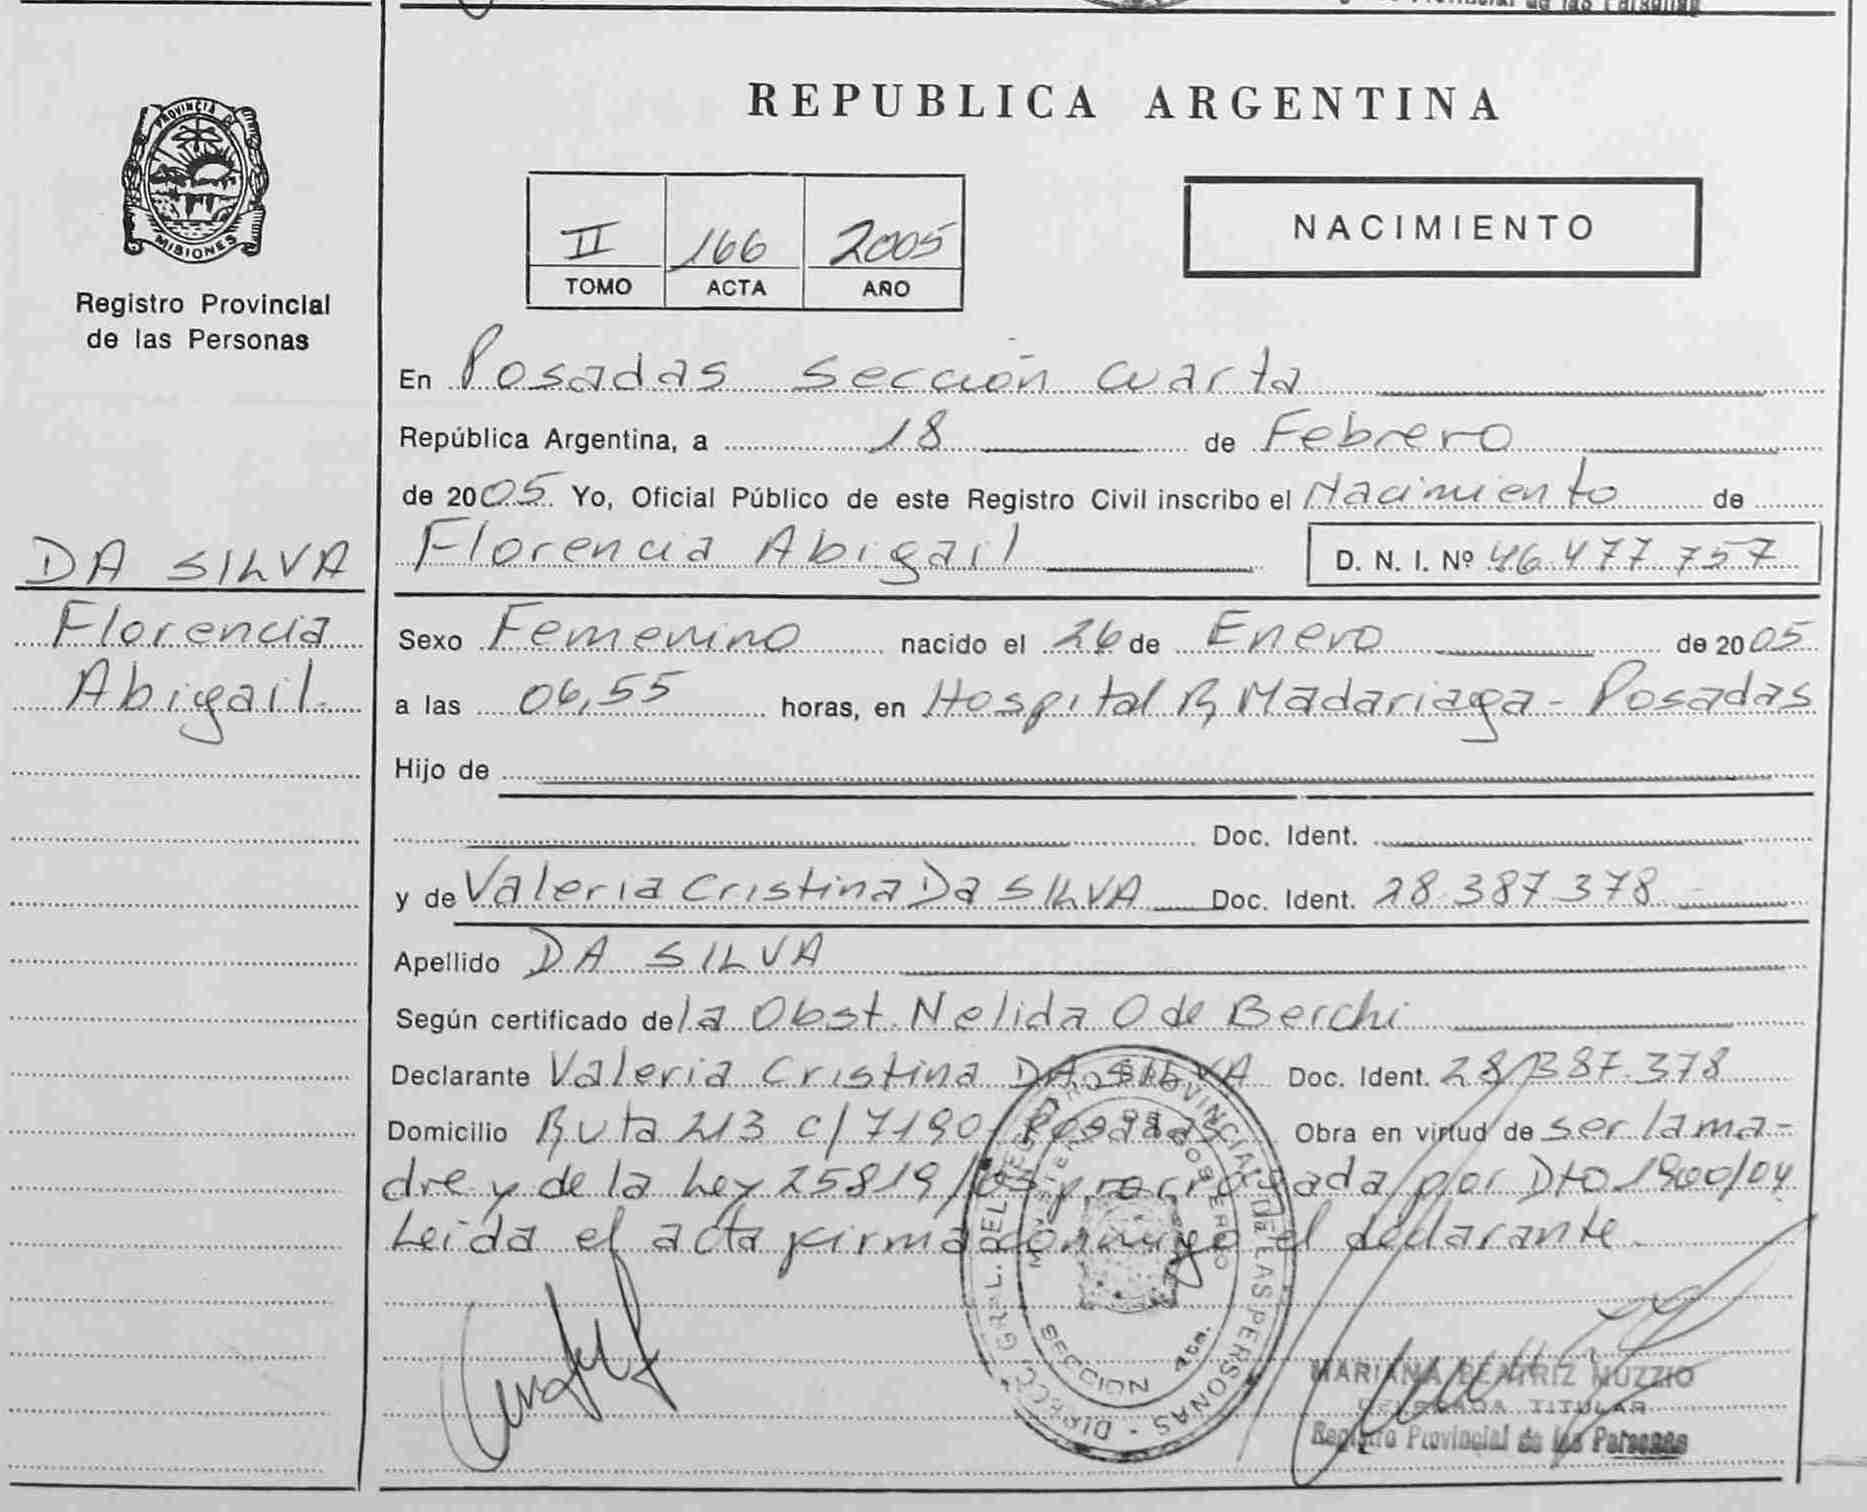 REPUBLICA ARGENTINA
PROVINCIA DE
MISIONES
Registro Provincial
de las Personas
II 166 2005
TOMO ACTA AÑO
NACIMIENTO
En Posadas Sección cuarta
República Argentina, a 18 de Febrero
de 2005 Yo, Oficial Público de este Registro Civil inscribo el Nacimiento de
DA SILVA
Florencia
Abigail.
Florencia Abigail D. N. I. Nº 46.477.757
Sexo Femenino nacido el 26 de Enero de 2005
a las 06,55 horas, en Hospital R, Madariaga - Posadas
Hijo de
Doc. Ident.
y de Valeria Cristina Da SILVA Doc. Ident. 28.387.378
Apellido DA SILVA
Según certificado de la Obst. Nelida O de Berchi
Declarante Valeria Cristina DA SILVA Doc. Ident. 28.387.378
Domicilio Ruta 213 c/7190 Posadas Obra en virtud de ser la ma-
dre y de la Ley 25819/03 prorrogada por Dto 1900/04
Leida el acta firma conmigo el declarante.
DIRECC. GRAL. DEL REGISTRO PROVINCIAL DE LAS PERSONAS
SECCION 4ta.
MARIANA BEATRIZ MUZZIO
DELEGADA TITULAR
Registro Provincial de las Personas